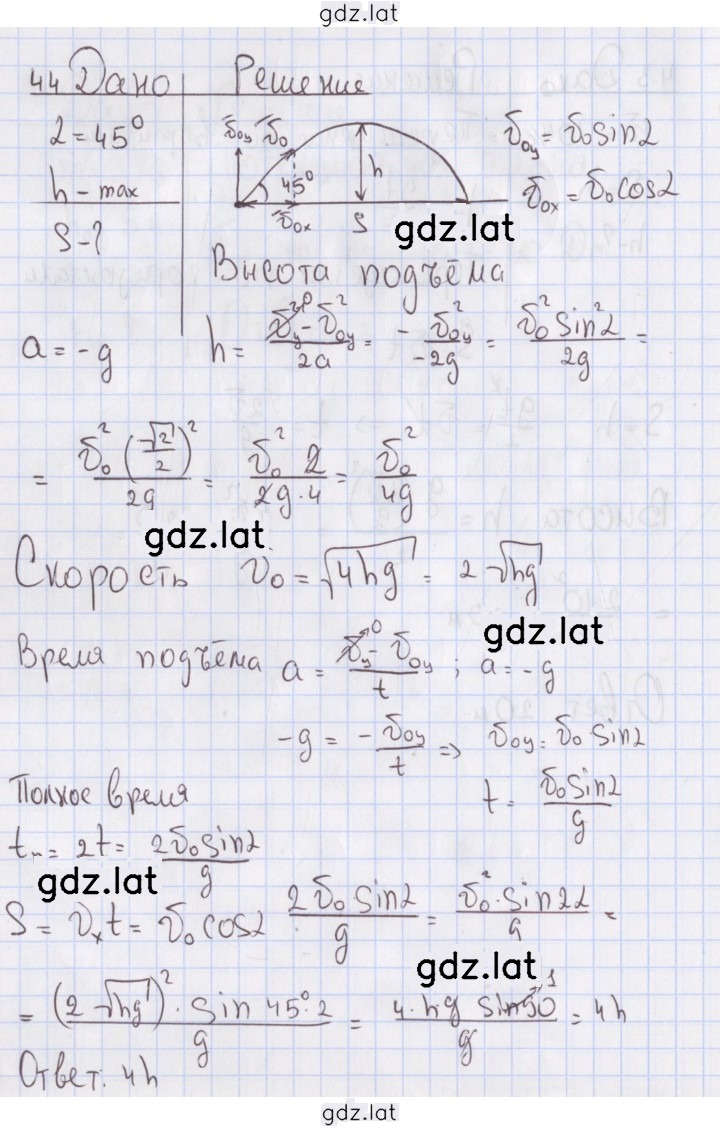 gdz.lat
44 Дано Решение
α = 45°
h - max
S - ?
v₀y v₀ 45° v₀x h S
v₀y = v₀ sin α
v₀x = v₀ cos α
gdz.lat
Высота подъёма
a = -g h = (v_y²↗0 - v₀y²)/2a = - v₀y²/(-2g) = v₀² sin² α/2g =
= v₀² (√2/2)²/2g = v₀² 2/(2g · 4) = v₀²/4g
gdz.lat
Скорость v₀ = √(4hg) = 2√(hg)
gdz.lat
Время подъёма a = (v_y↗0 - v₀y)/t ; a = -g
-g = - v₀y/t => v₀y = v₀ · sin α
Полное время t = v₀ sin α/g
tп = 2t = 2v₀ sin α/g
gdz.lat
S = vₓt = v₀ cos α 2v₀ sin α/g = v₀² · sin 2α/g =
gdz.lat
= (2√(hg))² · sin 45° · 2/g = 4 · hg sin 90↗1/g = 4h
Ответ. 4h
gdz.lat